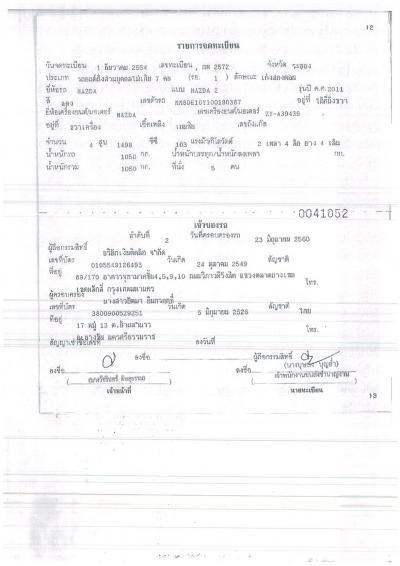 12
รายการจดทะเบียน
วันจดทะเบียน 1 ธันวาคม 2554 เลขทะเบียน กต 2572 จังหวัด ระยอง
ประเภท รถยนต์นั่งส่วนบุคคลไม่เกิน 7 คน (รย. 1) ลักษณะ เก๋งสองตอน
ยี่ห้อรถ MAZDA แบบ MAZDA 2 รุ่นปี ค.ศ. 2011
สี แดง เลขตัวรถ อยู่ที่
ยี่ห้อเครื่องยนต์/มอเตอร์ MAZDA เลขเครื่องยนต์/มอเตอร์ ZY-A39435
อยู่ที่ ขวาเครื่อง เชื้อเพลิง เบนซิน เลขถังแก๊ส
จำนวน 4 สูบ 1498 ซีซี 103 แรงม้า/กิโลวัตต์ 2 เพลา 4 ล้อ ยาง 4 เส้น
น้ำหนักรถ 1050 กก. น้ำหนักบรรทุก/น้ำหนักลงเพลา กก.
น้ำหนักรวม 1050 กก. ที่นั่ง 5 คน
0041052
เจ้าของรถ
ลำดับที่ 2 วันที่ครอบครองรถ 23 มิถุนายน 2560
ผู้ถือกรรมสิทธิ์
เลขที่บัตร 0105549126493 วันเกิด 24 ตุลาคม 2549 สัญชาติ
ที่อยู่ 89/170 4,5,9,10 ถนนวิภาวดีรังสิต แขวงตลาดบางเขน
เขตหลักสี่ กรุงเทพมหานคร โทร.
ผู้ครอบครอง
เลขที่บัตร 3800900529251 วันเกิด 5 มิถุนายน 2526 สัญชาติ ไทย
ที่อยู่ 17 หมู่ 13
นครศรีธรรมราช โทร.
สัญญาเช่าซื้อเลขที่ ลงวันที่
ลงชื่อ ผู้ถือกรรมสิทธิ์
ลงชื่อ ลงชื่อ
เจ้าหน้าที่ นายทะเบียน
13